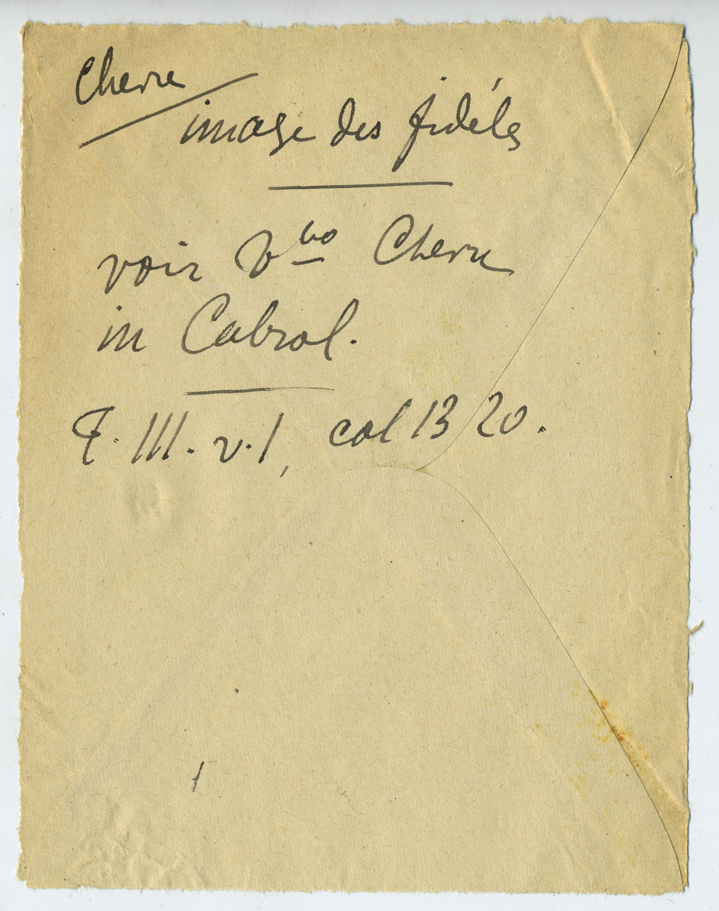 Chevre
image des fidèles
voir Vbo Chevre
in Cabrol.
T. III. v. 1, col 1320.
1